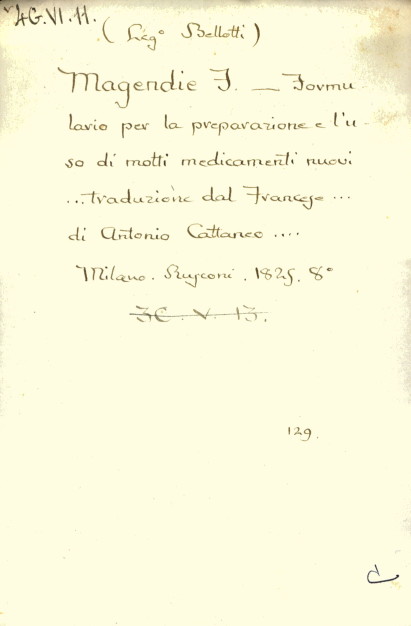 4G.VI.11.
(Leg° Bellotti)
Magendie F. — Formu
lario per la preparazione e l'u-
so di molti medicamenti nuovi
...traduzione dal Francese...
di Antonio Cattaneo....
Milano. Rusconi. 1825. 8°
3C.V.13.
129.